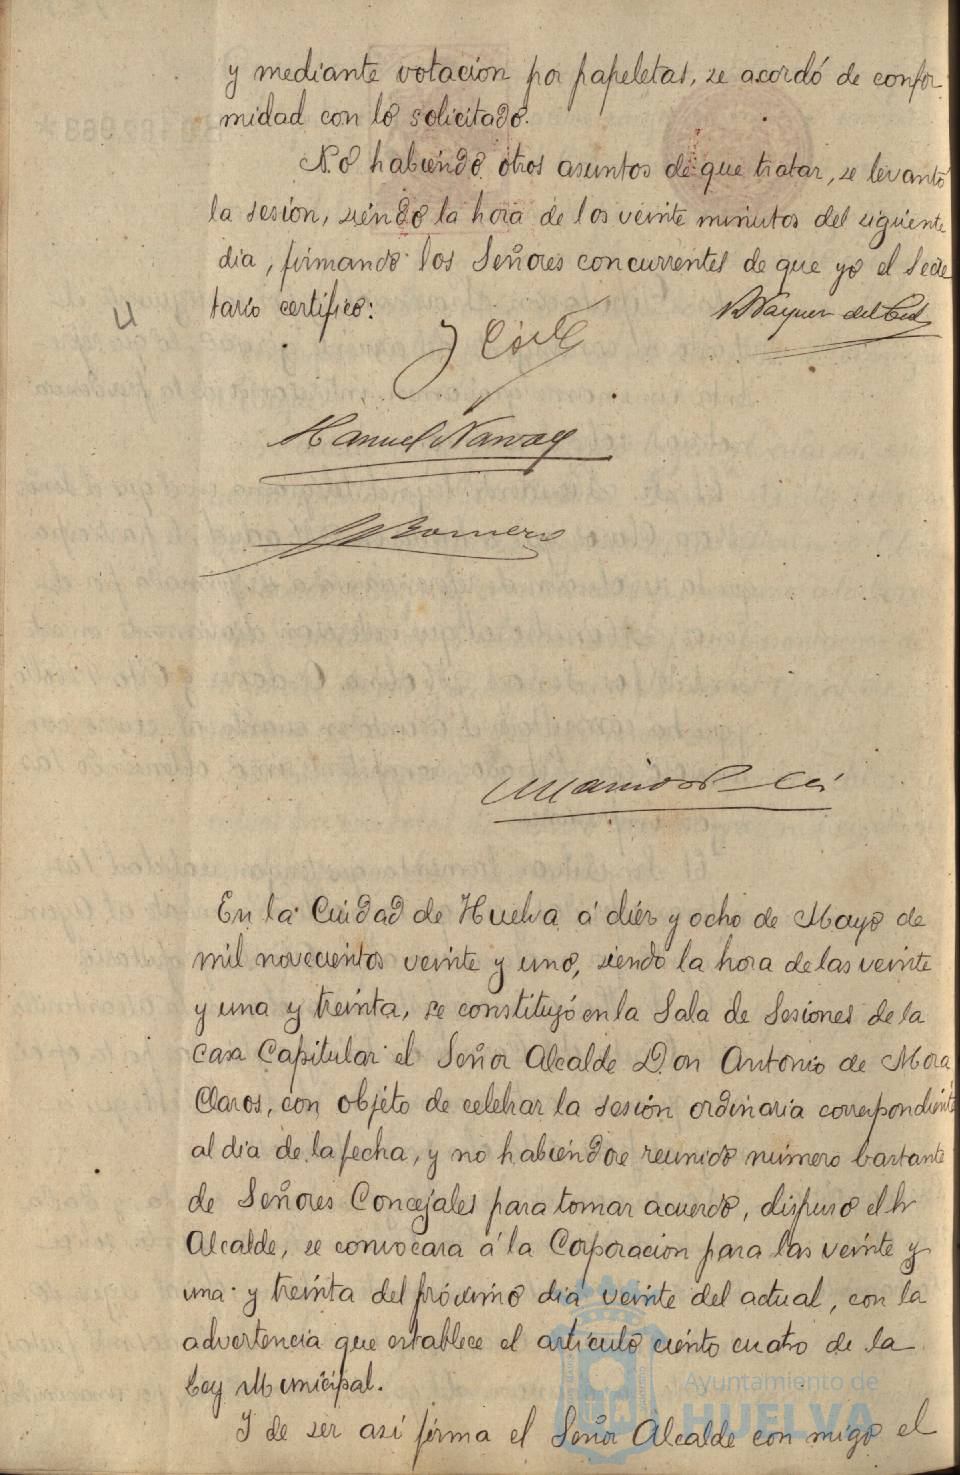 y mediante votación por papeletas, se acordó de confor
midad con lo solicitado.
No habiendo otros asuntos de que tratar, se levantó
la sesión, siendo la hora de los veinte minutos del siguiente
dia, firmando los Señores concurrentes de que yo el Secre
tario certifico:
Manuel Narvaez
Romero
En la Ciudad de Huelva á diéz y ocho de Mayo de
mil novecientos veinte y uno, siendo la hora de las veinte
y una y treinta, se constituyó en la Sala de Sesiones de la
Casa Capitular el Señor Alcalde Don Antonio de Mora
Claros, con objeto de celebrar la sesión ordinaria correspondiente
al dia de la fecha, y no habiéndose reunido número bastante
de Señores Concejales para tomar acuerdo, dispuso el Sr
Alcalde, se convocara á la Corporación para las veinte y
una y treinta del próximo dia veinte del actual, con la
advertencia que establece el artículo ciento cuatro de la
Ley Municipal.
Y de ser así firma el Señor Alcalde con migo el
Ayuntamiento de
HUELVA